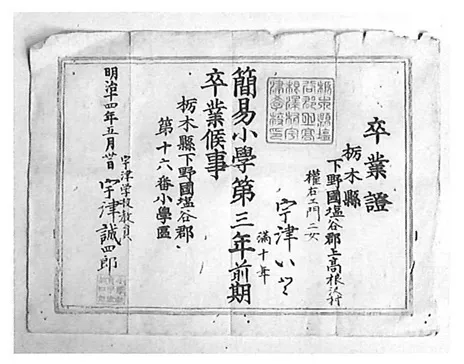 卒業證
栃木縣
下野國塩谷郡上高根沢村
權右エ門二女
宇津いと
満十年
簡易小學第三年前期
卒業候事
栃木縣下野國塩谷郡
第十六番小學區
宇津学校教員
宇津誠四郎
明治十四年五月廿日